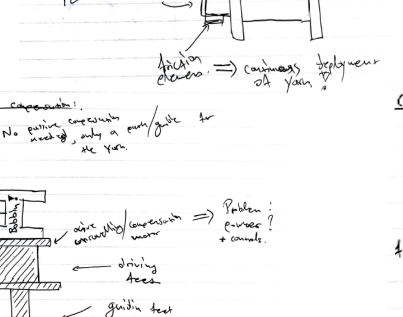 friction
element. ⇒ continuous deployment
of yarn !
compensation:
No passive compensation
needed, only a path/guide for
the yarn.
Bobbin
active
unravelling/compensation
motor ⇒ Problem:
power?
+ controls.
driving
guiding feet